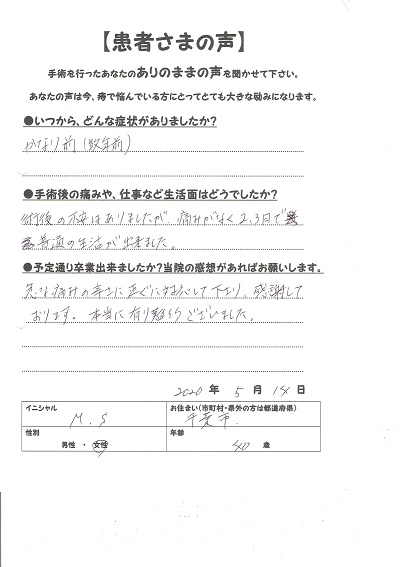 【患者さまの声】
手術を行ったあなたのありのままの声を聞かせて下さい。
あなたの声は今、痔で悩んでいる方にとってとても大きな励みになります。
●いつから、どんな症状がありましたか?
かなり前(数年前)
●手術後の痛みや、仕事など生活面はどうでしたか?
術後の不安はありましたが、痛みがなく2,3日で
普通の生活が出来ました。
●予定通り卒業出来ましたか?当院の感想があればお願いします。
急な痛みの辛さに直ぐに対応して下さり、感謝して
おります。本当に有り難うございました。
2020年 5月 14日
イニシャル
M.S
お住まい(市町村・県外の方は都道府県)
千葉市
性別
男性・女性
年齢
40 歳